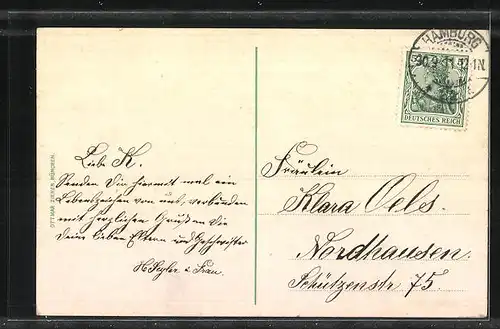 HAMBURG
30.9.11.12-1N
DEUTSCHES REICH
OTTMAR ZIEHER, MÜNCHEN.
Liebe K.
Senden Dir hiermit mal ein
Lebenszeichen von uns, verbunden
mit herzlichen Gruß an Die
Deine lieben Eltern und Geschwister
H Segler u Frau.
Fräulein
Klara Oels.
Nordhausen.
Schützenstr 75.